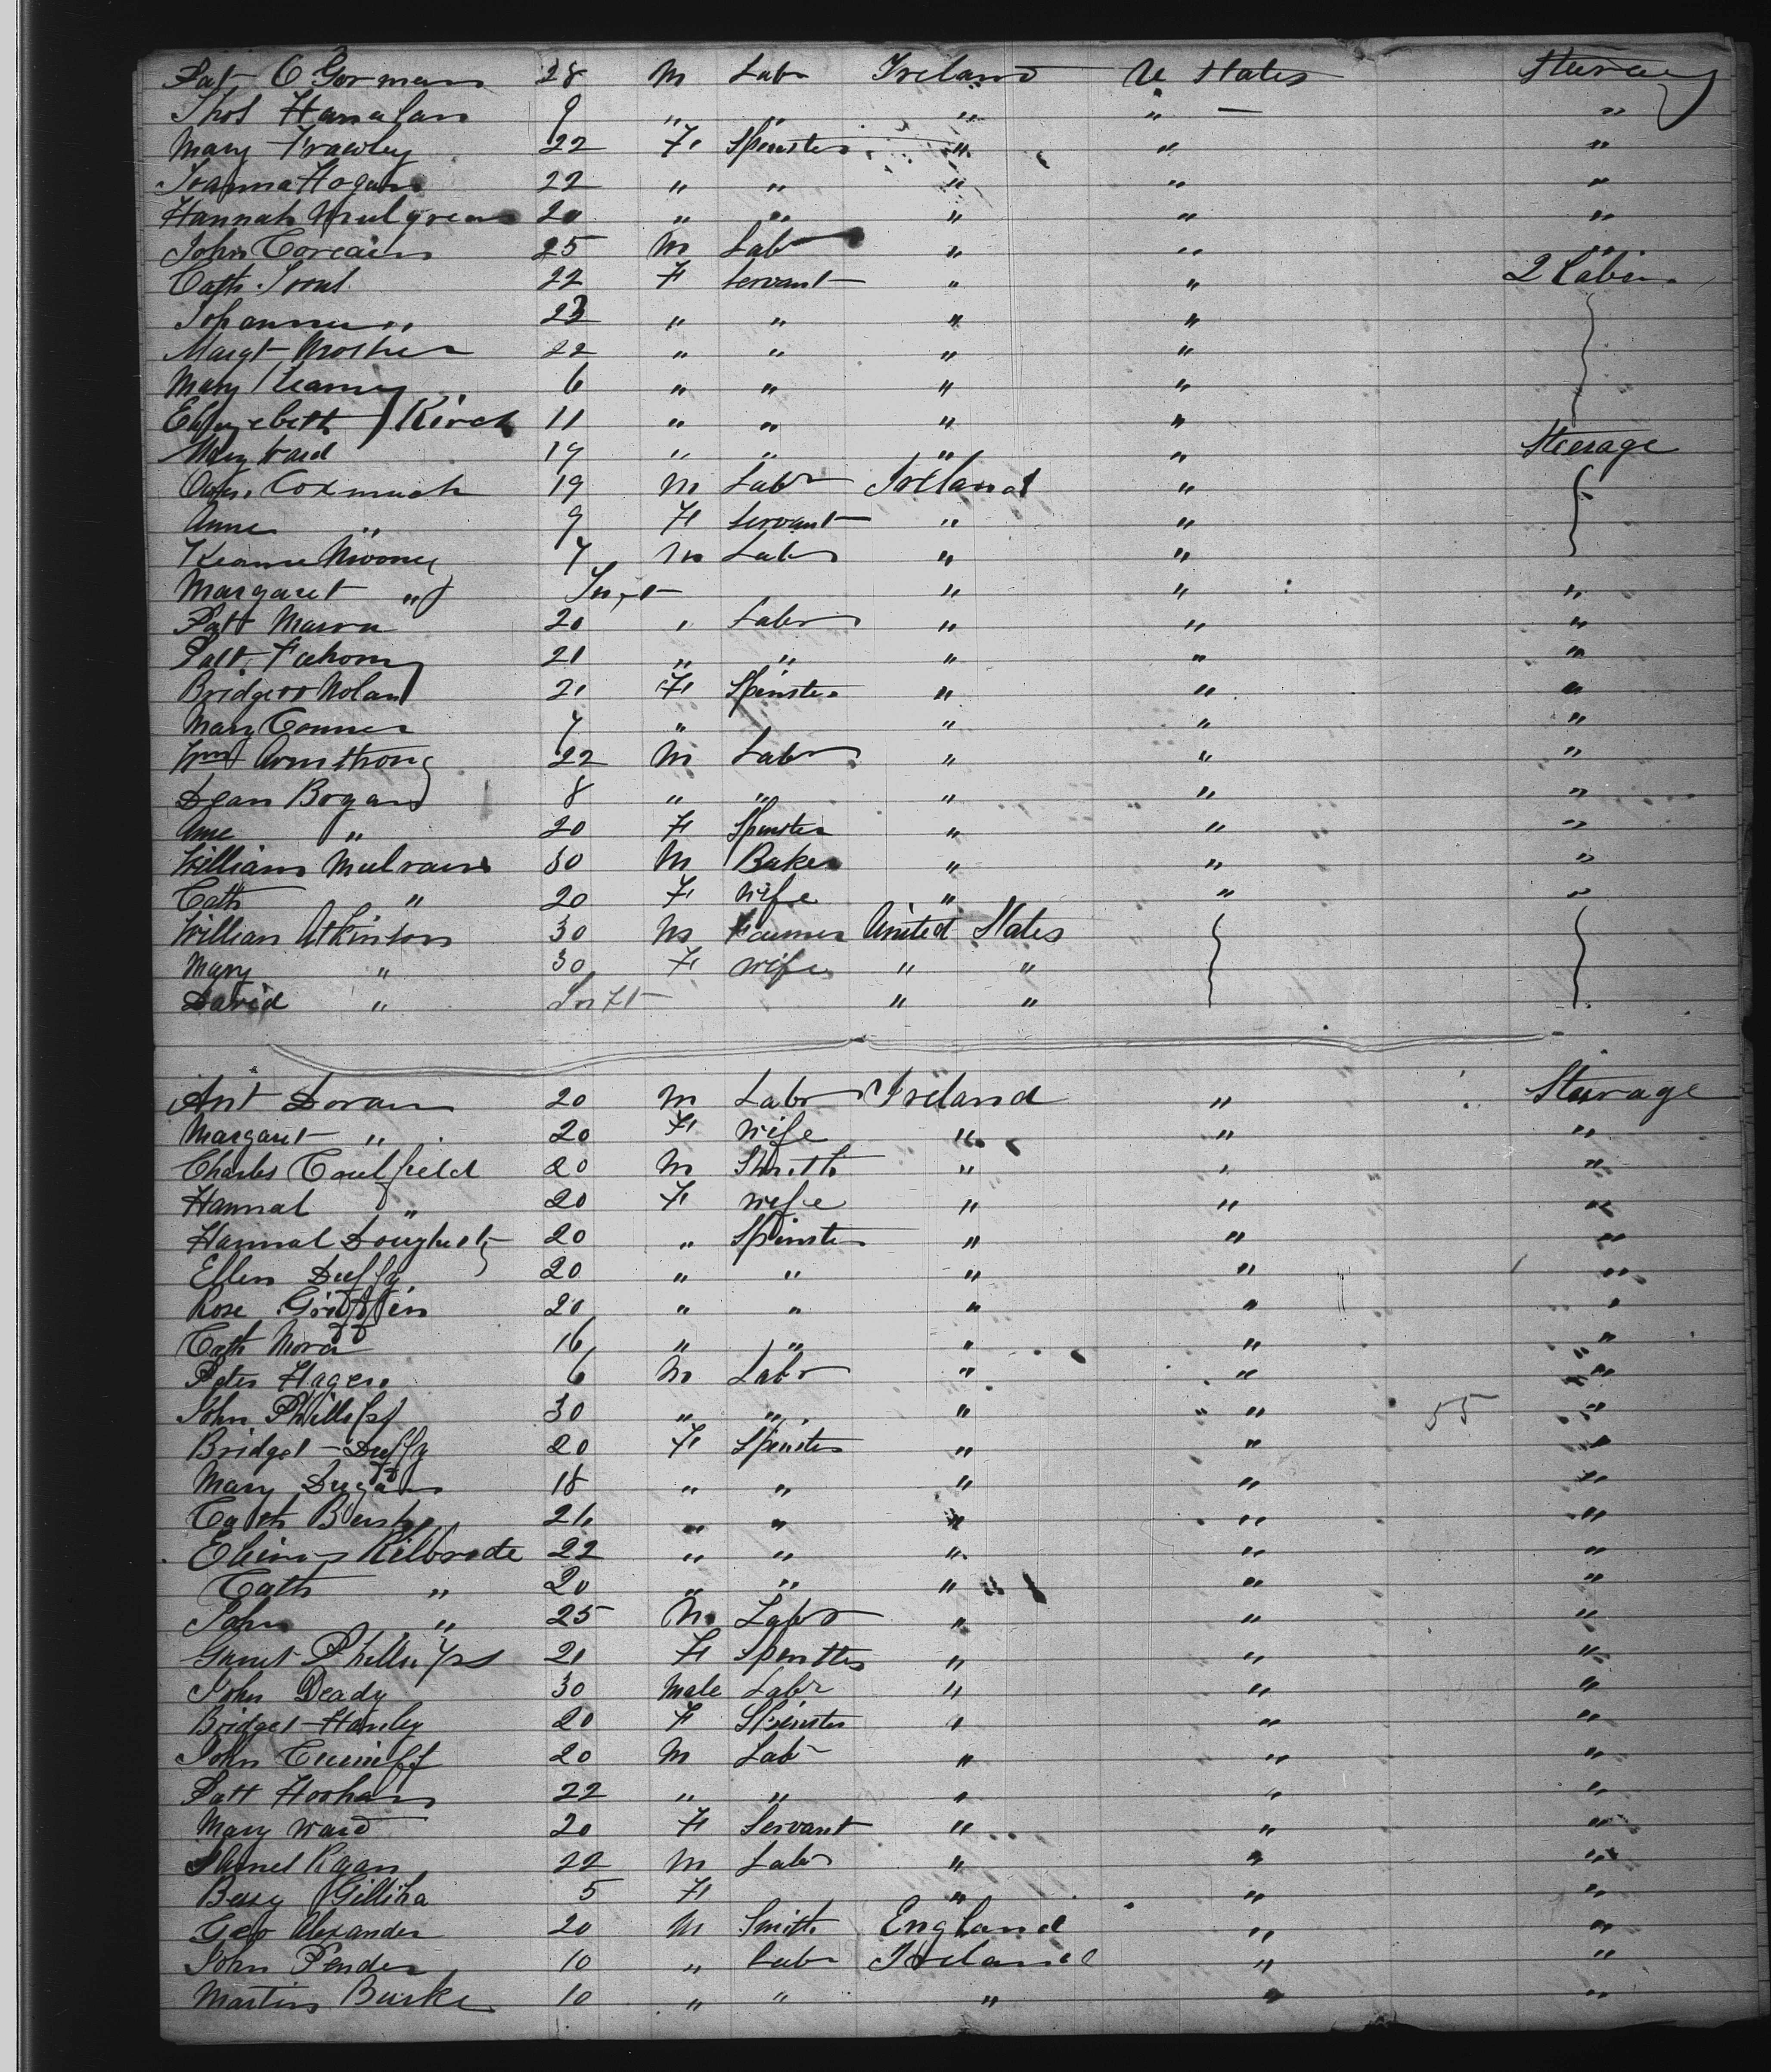 Pat O Gorman 28 M Labr Ireland U States Steerage
Thos Hanafan 9 " " " " — "
Mary Frawley 22 F Spinster " " "
Joanna Hogan 22 " " " " "
Hannah Mulgrean 20 " " " " "
John Corcain 25 M Labr " " "
Cath 22 F Servant " " 2 Cabin
Johanna " 23 " " " "
Margt Mosher 22 " " " "
Mary Kearney 6 " " " "
Elizebeth Kirch 11 " " " "
Mary Ward 19 " " " " Steerage
Cormuck 19 M Labr Ireland "
Anne " 9 F Servant " "
Keanne Mooney 7 M Labr " "
Margaret " Inft " " "
Patt Mason 20 " Labr " " "
Patt Fahony 21 " " " " "
Bridget Nolan 21 F Spinster " " "
Mary Conner 7 " " " "
Wm Armstrong 22 M Labr " " "
Dean Bogan 8 " " " " "
Ane " 20 F Spinster " " "
William Mulvain 30 M Baker " " "
Cath " 20 F Wife " " "
William Atkinson 30 M Farmer United States
Mary " 30 F Wife " "
David " Inft " "
Ant Doran 20 M Labr Ireland " Steerage
Margaret " 20 F Wife " " "
Charles Caulfield 20 M Smith " " "
Hannah " 20 F Wife " " "
Hannah Dougherty 20 " Spinster " " "
Ellen Duffy 20 " " " " "
Rose Griffin 20 " " " " "
Cath Moran 16 " " " " "
Peter Hagen 6 M Labr " " "
John Phillips 30 " " " " 55 "
Bridget Duffy 20 F Spinster " " "
Mary Dugan 18 " " " " "
Cath Bush 21 " " " " "
Kilbride 22 " " " " "
Cath " 20 " " " " "
John " 25 M Labr " " "
Phillips 21 F Spinster " " "
John Deady 30 Male Labr " " "
Bridget Hanley 20 F Spinster " " "
John Cuniff 20 M Labr " " "
Patt Hoohan 22 " " " " "
Mary Ward 20 F Servant " " "
Ragan 22 M Labr " " "
Bessy Gilliha 5 F " " "
Geo Alexander 20 M Smith England " "
John Pender 10 " Labr Ireland " "
Martin Burke 10 " " " " "